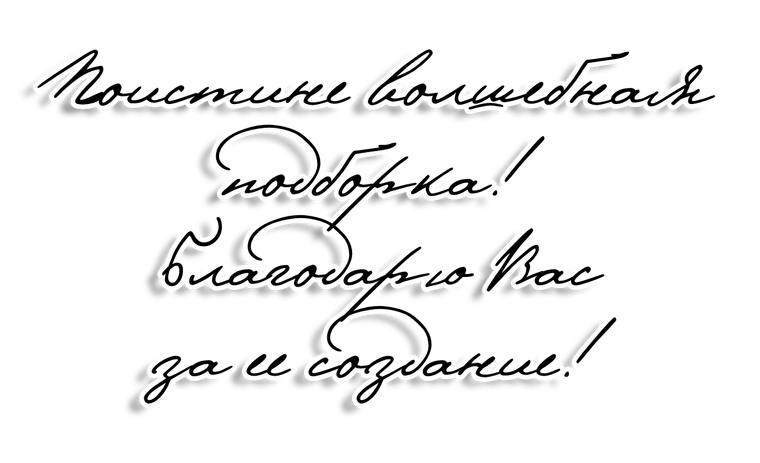 Поистине волшебная
подборка!
Благодарю Вас
за ее создание!